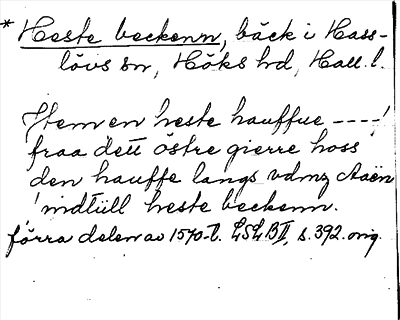 * Heste beckenn, bäck i Hass-
lövs sn, Höks hd, Hall. l.
Item en heste hauffue ----!
fraa dett östre gierre hoss
den hauffe langs vdmz Aaën
indtüll heste beckenn.
förra delen av 1570-t. LSLB II, s. 392. orig.